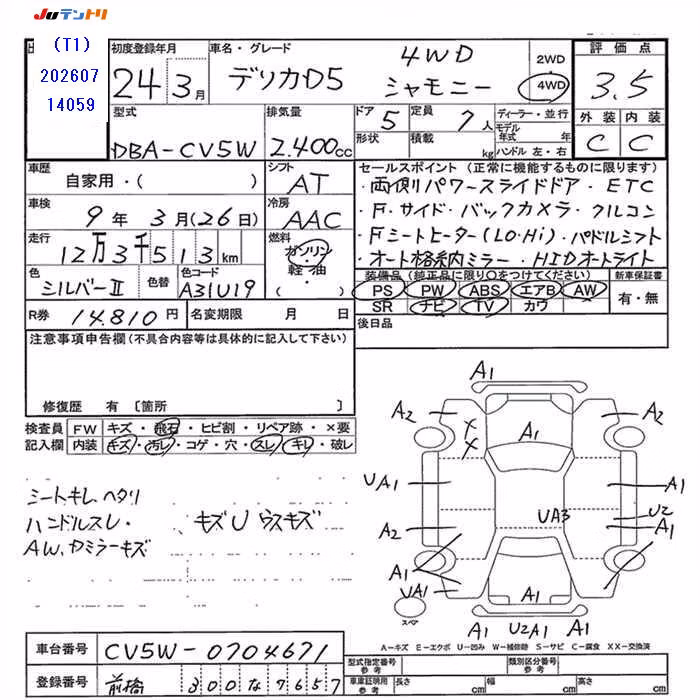 JUテントリ
(T1)
202607
14059
初度登録年月
24 3月
車名・グレード
4WD
デリカD5 シャモニー
2WD
4WD
評価点
3.5
外装 内装
C C
型式
DBA-CV5W
排気量
2.400cc
ドア 5
形状
定員 7人
積載 kg
ディーラー・並行
モデル年式 年
ハンドル 左・右
車歴
自家用・( )
シフト
AT
車検
9年 3月(26日)
冷房
AAC
走行
12万3千513km
燃料
ガソリン・
軽・油
( )
色
シルバーⅡ
色替
色コード
A31U19
セールスポイント (正常に機能するものに限ります)
・両側パワースライドドア・ETC
・F.サイド・バックカメラ・クルコン
・Fシートヒーター(LO・Hi)・パドルシフト
・オート格納ミラー・HIDオートライト
装備品(純正品に限り○をつけてください)
PS PW ABS エアB AW
SR ナビ TV カワ
新車保証書
有・無
R券 14.810円
名変期限 月 日
後日品
注意事項申告欄(不具合内容等は具体的に記入して下さい)
修復歴 有 〔箇所 〕
検査員記入欄
FW キズ・飛石・ヒビ割・リペア跡・×要
内装 キズ・汚レ・コゲ・穴・スレ・キレ・破レ
シートキレ、ヘタリ
ハンドルスレ・ キズU ウスキズ
AW、ドミラーキズ
A1
A2 A2
A1
UA1 A1
UA3 U2
A2
A1 A1
UA1 A1
A1 U2A1 A1
スペア
A-キズ E-エクボ U-凹み W-補修跡 S-サビ C-腐食 XX-交換済
車台番号 CV5W-0704671
登録番号 前橋 300な7657
型式指定番号
参考
類別区分番号
参考
車庫証明用
参考
長さ cm
幅 cm
高さ cm